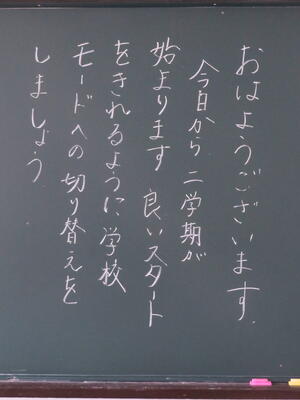 おはようございます.
今日から二学期が
始まります 良いスタート
をきれるように、学校
モードへの切り替えを
しましょう